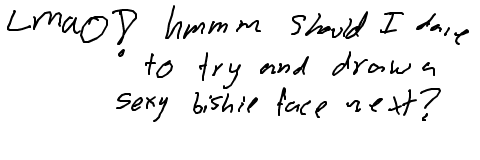 Lmao! hmmm should I dare
to try and draw a
sexy bishie face next?